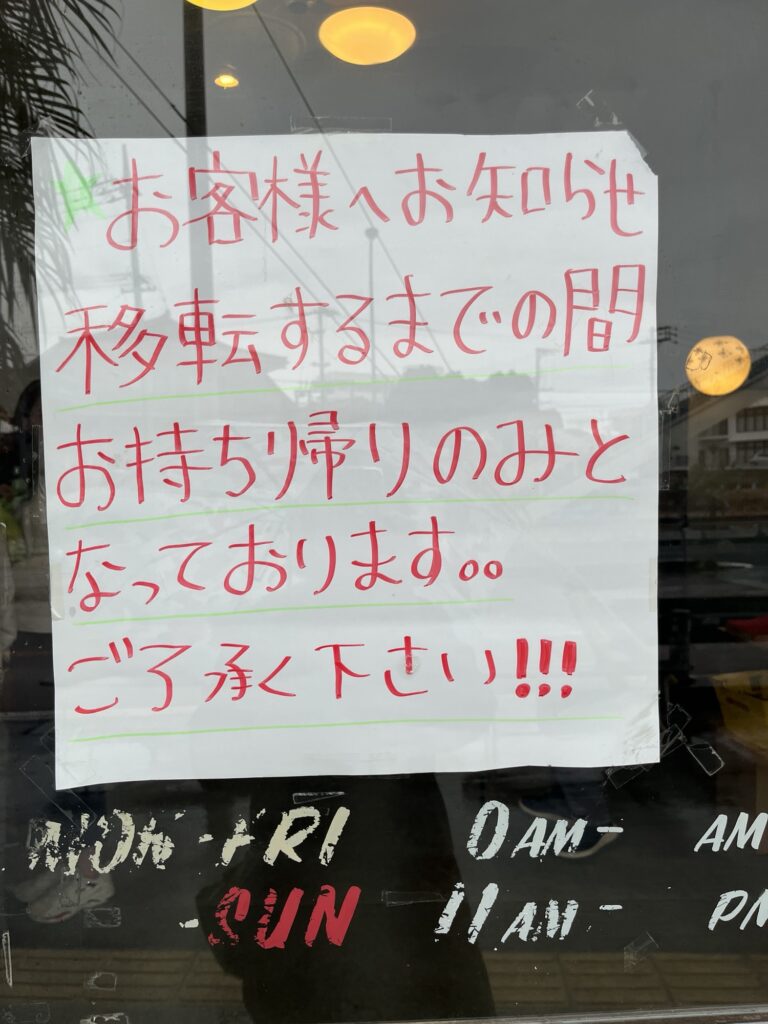 お客様へお知らせ
移転するまでの間
お持ち帰りのみと
なっております。。
ご了承く下さい!!!
MON-FRI 0AM- AM
-SUN 11AM- PM